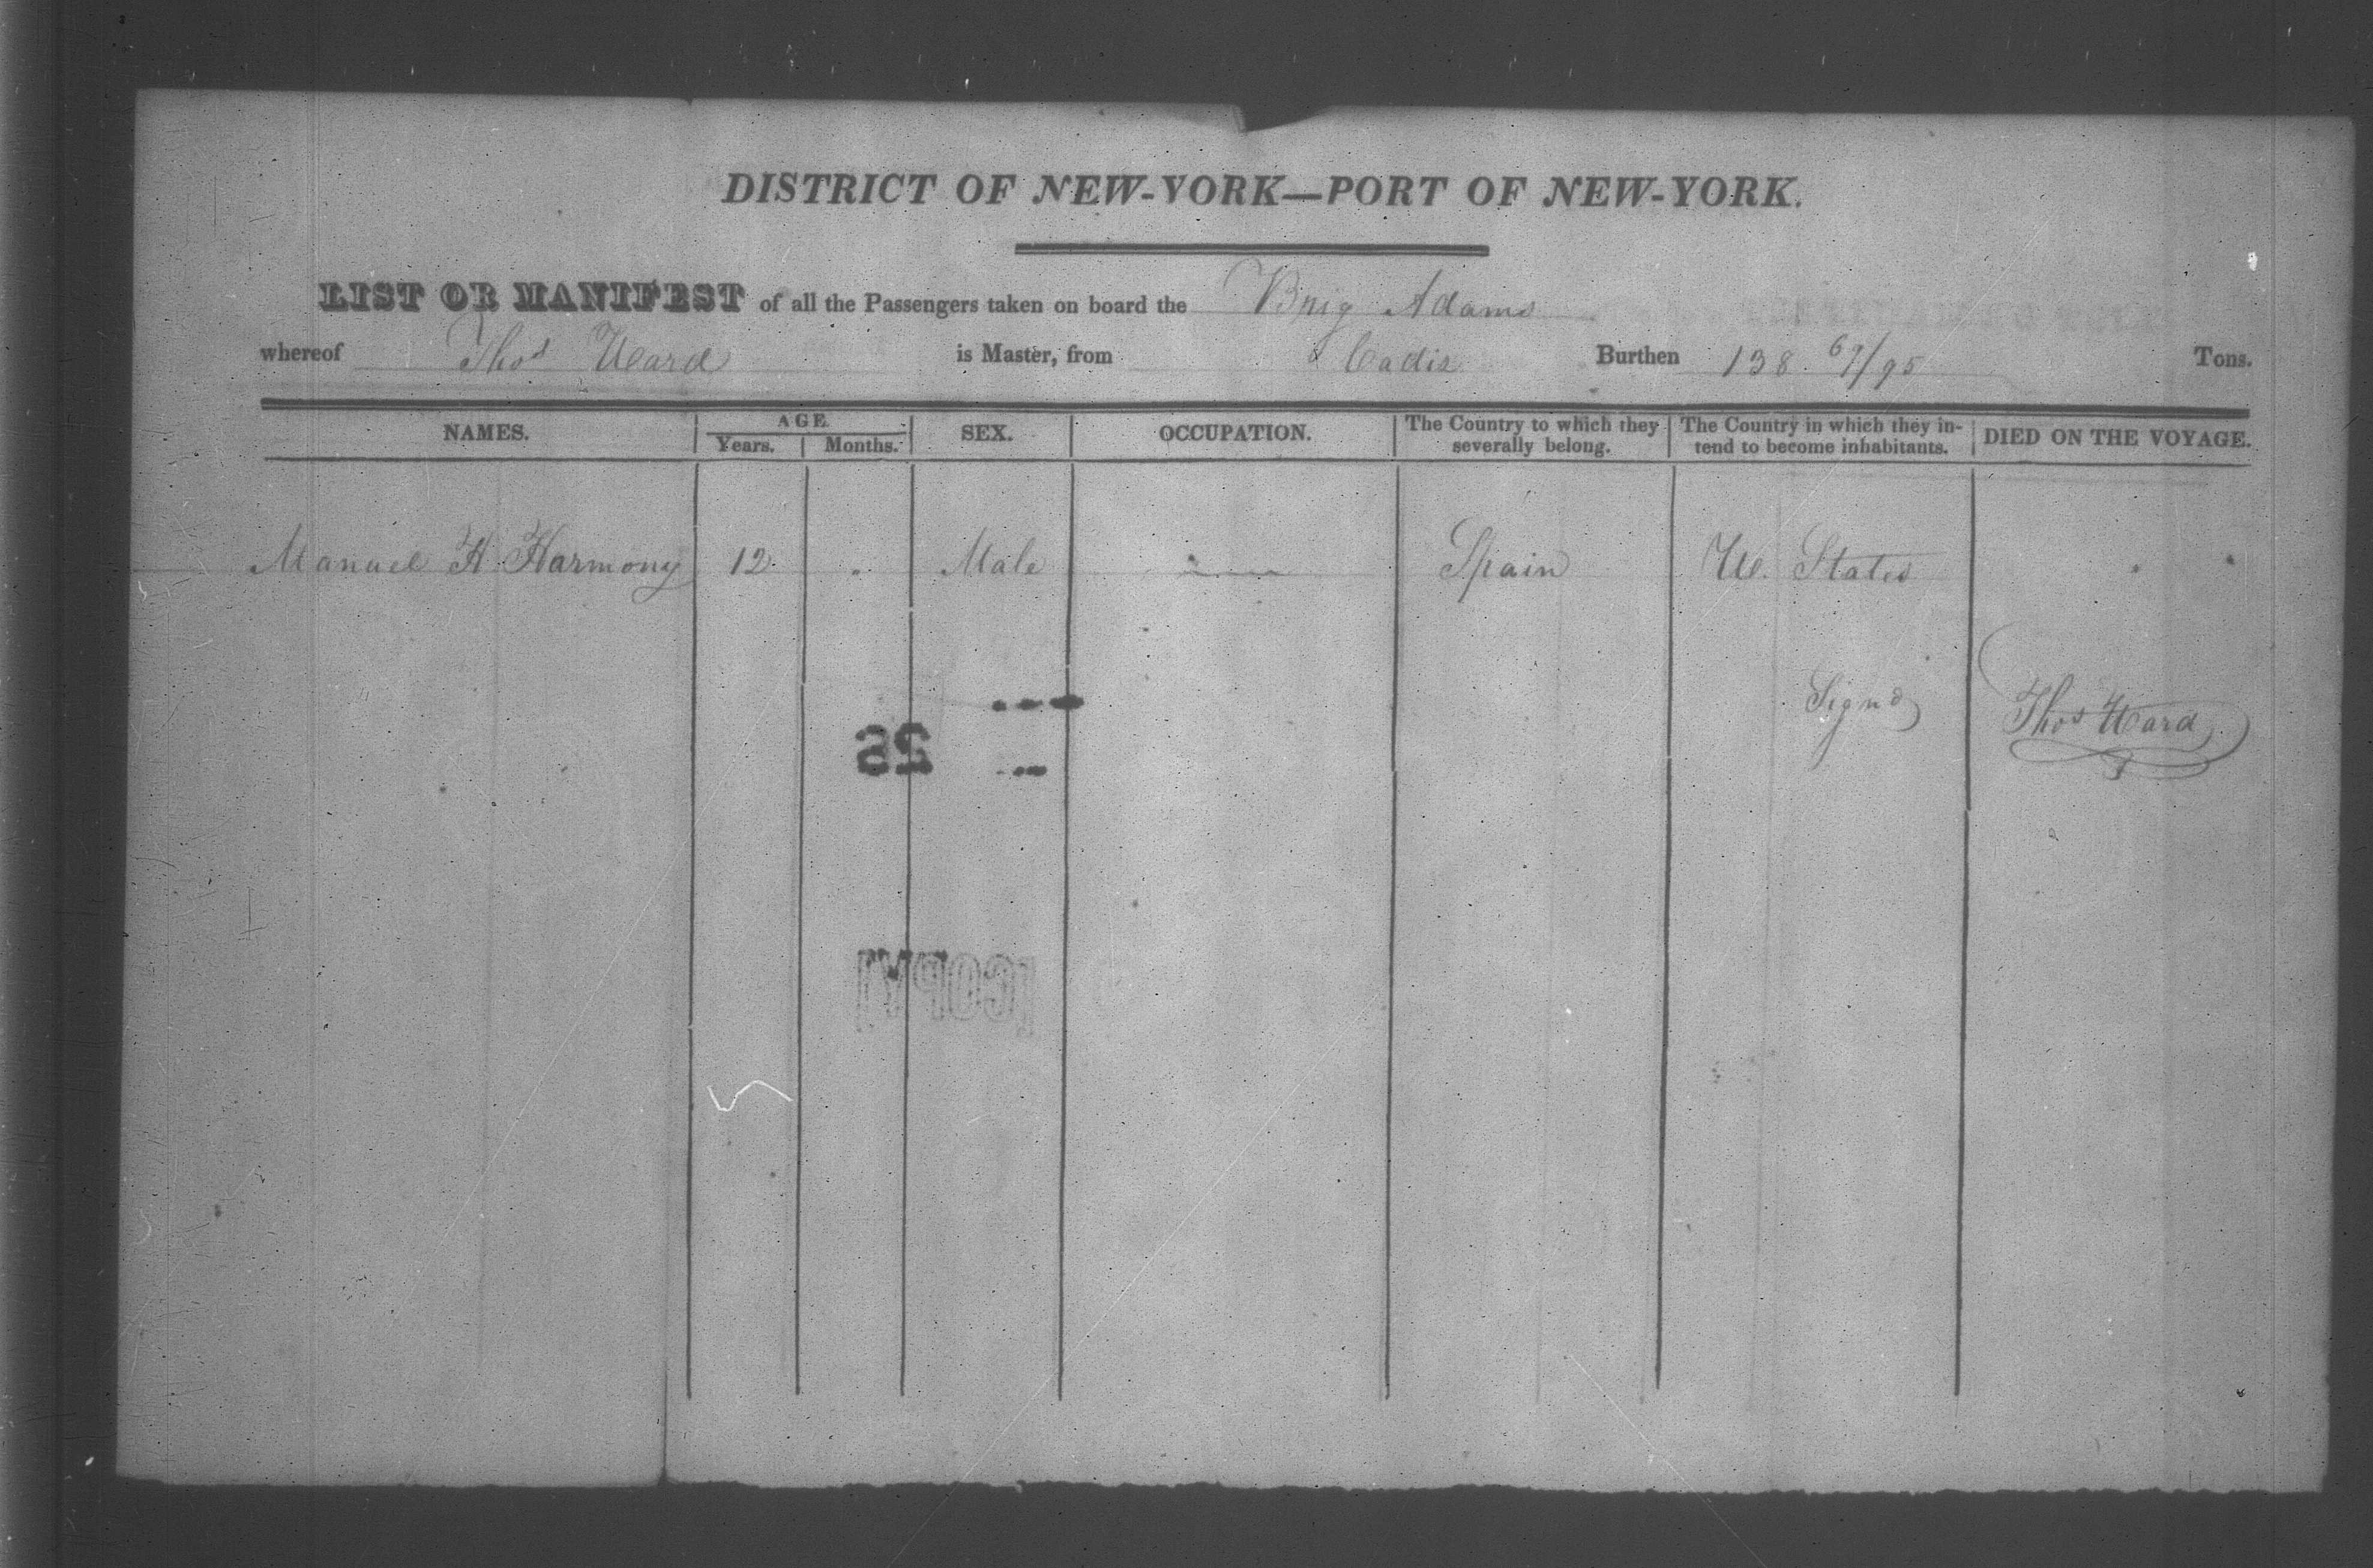 DISTRICT OF NEW-YORK—PORT OF NEW-YORK.
LIST OR MANIFEST of all the Passengers taken on board the Brig Adams
whereof Thos Ward is Master, from Cadiz Burthen 138. 69/95 Tons.
NAMES. AGE. Years. Months. SEX. OCCUPATION. The Country to which they severally belong. The Country in which they intend to become inhabitants. DIED ON THE VOYAGE.
Manuel H Harmony 12 " Male — Spain U. States
Signd Thos Ward
25
[COPY]